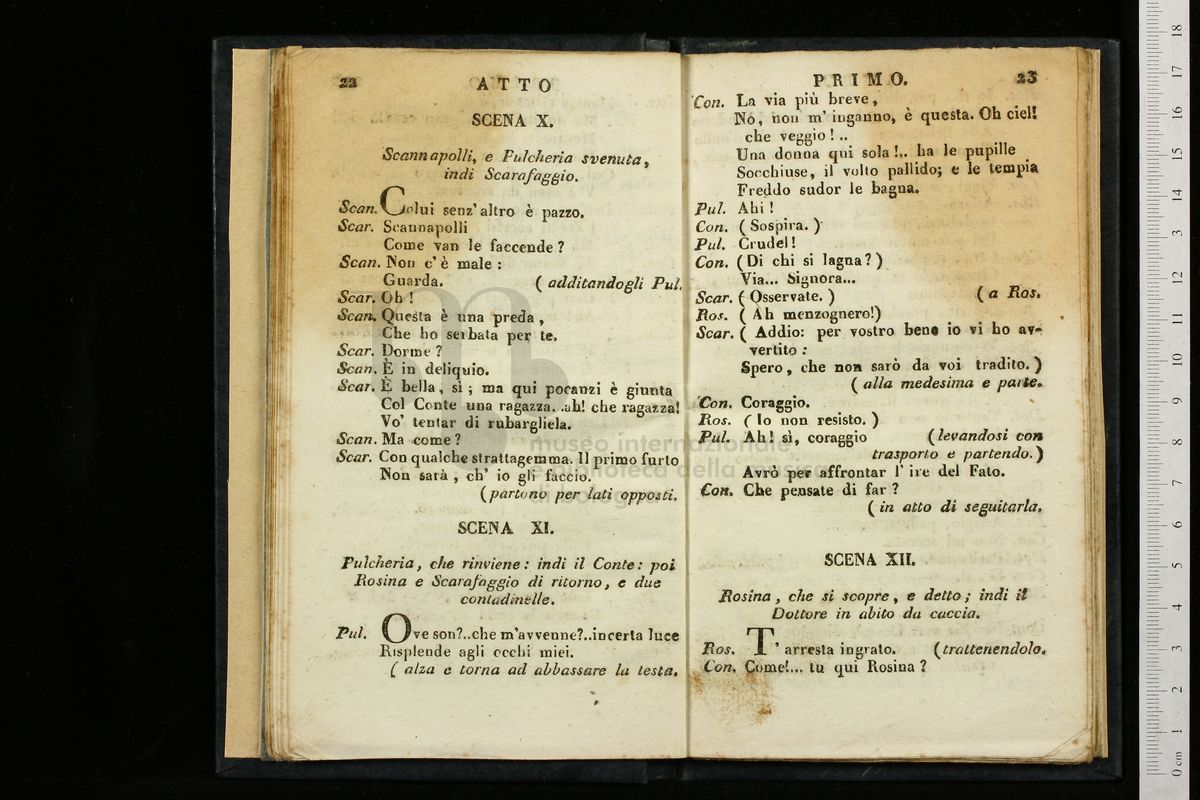 22 ATTO
SCENA X.
Scannapolli, e Pulcheria svenuta,
indi Scarafaggio.
Scan. Colui senz' altro è pazzo.
Scar. Scannapolli
Come van le faccende?
Scan. Non c' è male:
Guarda. ( additandogli Pul.
Scar. Oh!
Scan. Questa è una preda,
Che ho serbata per te.
Scar. Dorme?
Scan. È in deliquio.
Scar. È bella, sì; ma qui pocanzi è giunta
Col Conte una ragazza. .ah! che ragazza!
Vo' tentar di rubargliela.
Scan. Ma come?
Scar. Con qualche strattagemma. Il primo furto
Non sarà, ch' io gli faccio.
(partono per lati opposti.
SCENA XI.
Pulcheria, che rinviene: indi il Conte: poi
Rosina e Scarafaggio di ritorno, e due
contadinelle.
Pul. Ove son?..che m'avvenne?..incerta luce
Risplende agli occhi miei.
( alza e torna ad abbassare la testa.
PRIMO. 23
Con. La via più breve,
No, non m' inganno, è questa. Oh ciel!
che veggio!..
Una donna qui sola!.. ha le pupille
Socchiuse, il volto pallido; e le tempia
Freddo sudor le bagna.
Pul. Ahi!
Con. ( Sospira. )
Pul. Crudel!
Con. (Di chi si lagna?)
Via... Signora...
Scar. ( Osservate. ) ( a Ros.
Ros. ( Ah menzognero!)
Scar. ( Addio: per vostro bene io vi ho av-
vertito:
Spero, che non sarò da voi tradito. )
( alla medesima e parte.
Con. Coraggio.
Ros. ( Io non resisto. )
Pul. Ah! sì, coraggio (levandosi con
trasporto e partendo.)
Avrò per affrontar l' ire del Fato.
Con. Che pensate di far?
( in atto di seguitarla.
SCENA XII.
Rosina, che si scopre, e detto; indi il
Dottore in abito da caccia.
Ros. T' arresta ingrato. (trattenendolo.
Con. Come!... tu qui Rosina?
museo internazionale
e biblioteca della musica
di bologna
0 cm 1 2 3 4 5 6 7 8 9 10 11 12 13 14 15 16 17 18